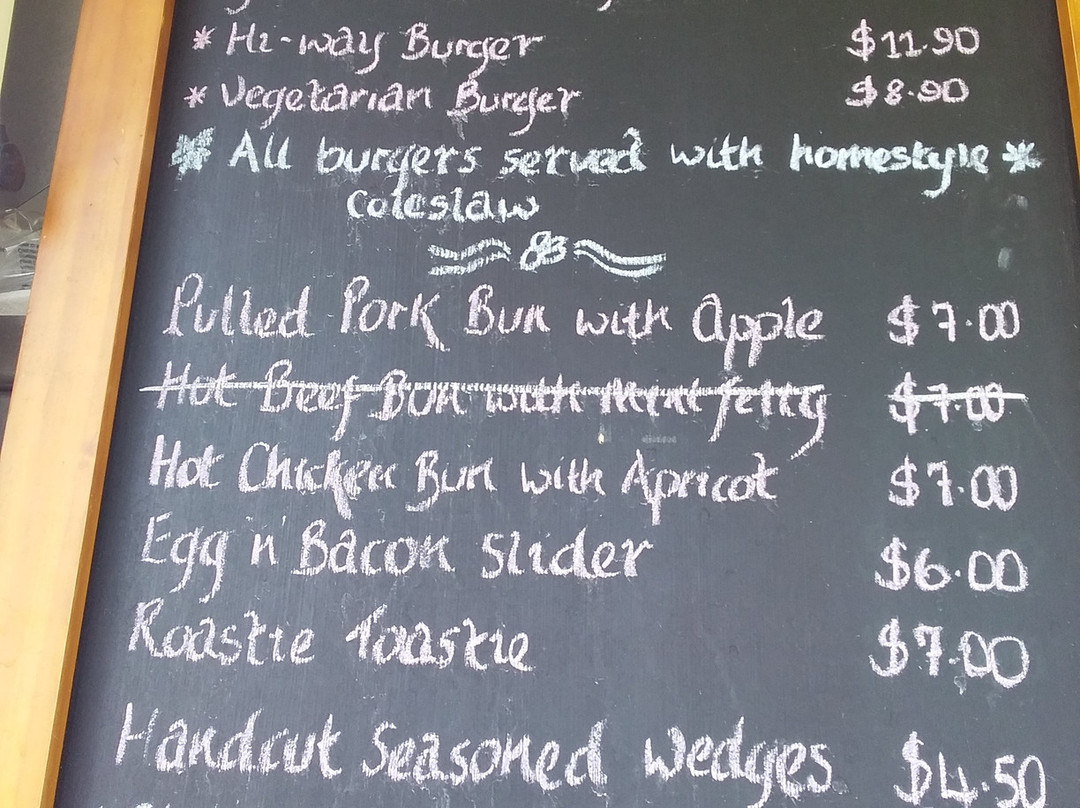 * Hi-way Burger $11.90
* Vegetarian Burger $8.90
* All burgers served with homestyle *
coleslaw
Pulled Pork Bun with Apple $7.00
Hot Beef Bun with Mint Jelly $7.00
Hot Chicken Bun with Apricot $7.00
Egg 'n' Bacon Slider $6.00
Roastie Toastie $7.00
Handcut Seasoned Wedges $4.50